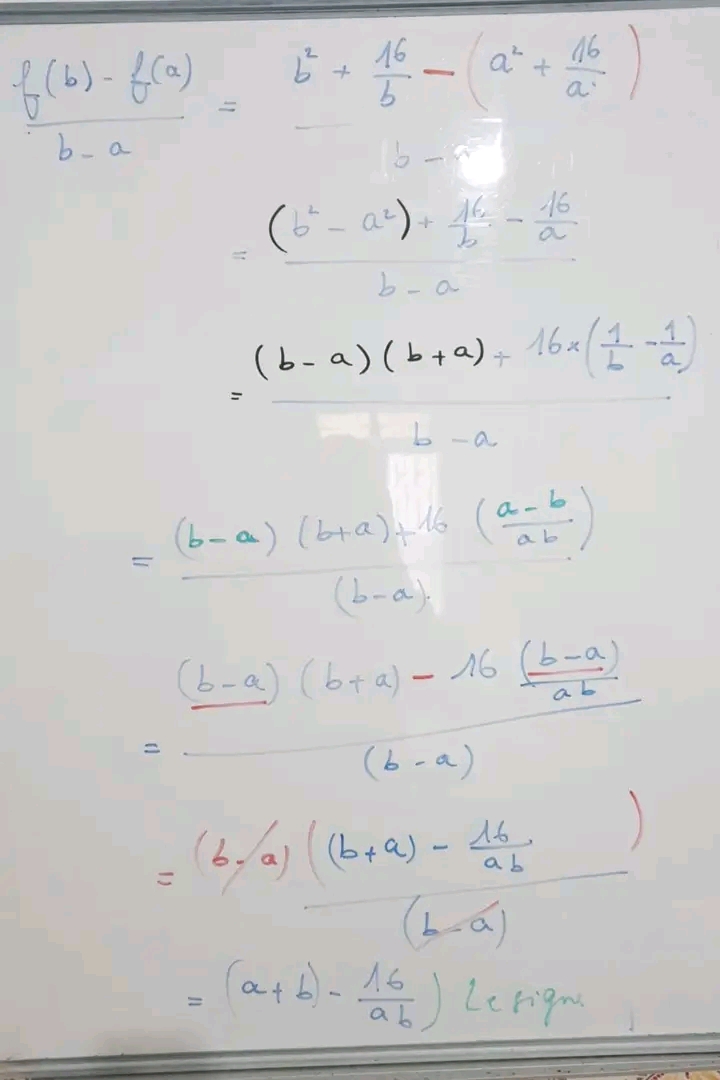 (f(b) - f(a))/(b - a) = (b² + 16/b - (a² + 16/a))/(b -
= ((b² - a²) + 16/b - 16/a)/(b - a)
= ((b - a)(b + a) + 16×(1/b - 1/a))/(b - a)
= ((b - a)(b + a) + 16 ((a - b)/ab))/(b - a)
= ((b - a)(b + a) - 16 (b - a)/ab)/(b - a)
= (b - a)((b + a) - 16/ab)/(b - a)
= (a + b) - 16/ab) Le signe